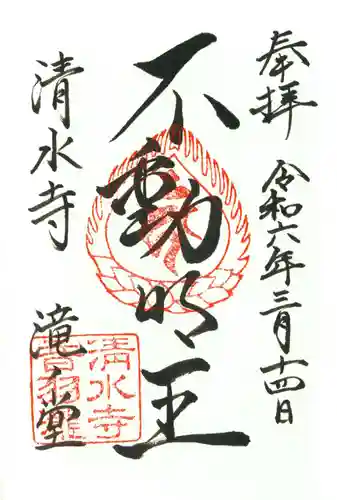 奉拝
令和六年三月十四日
不動明王
清水寺
滝之堂
清水寺
音羽山